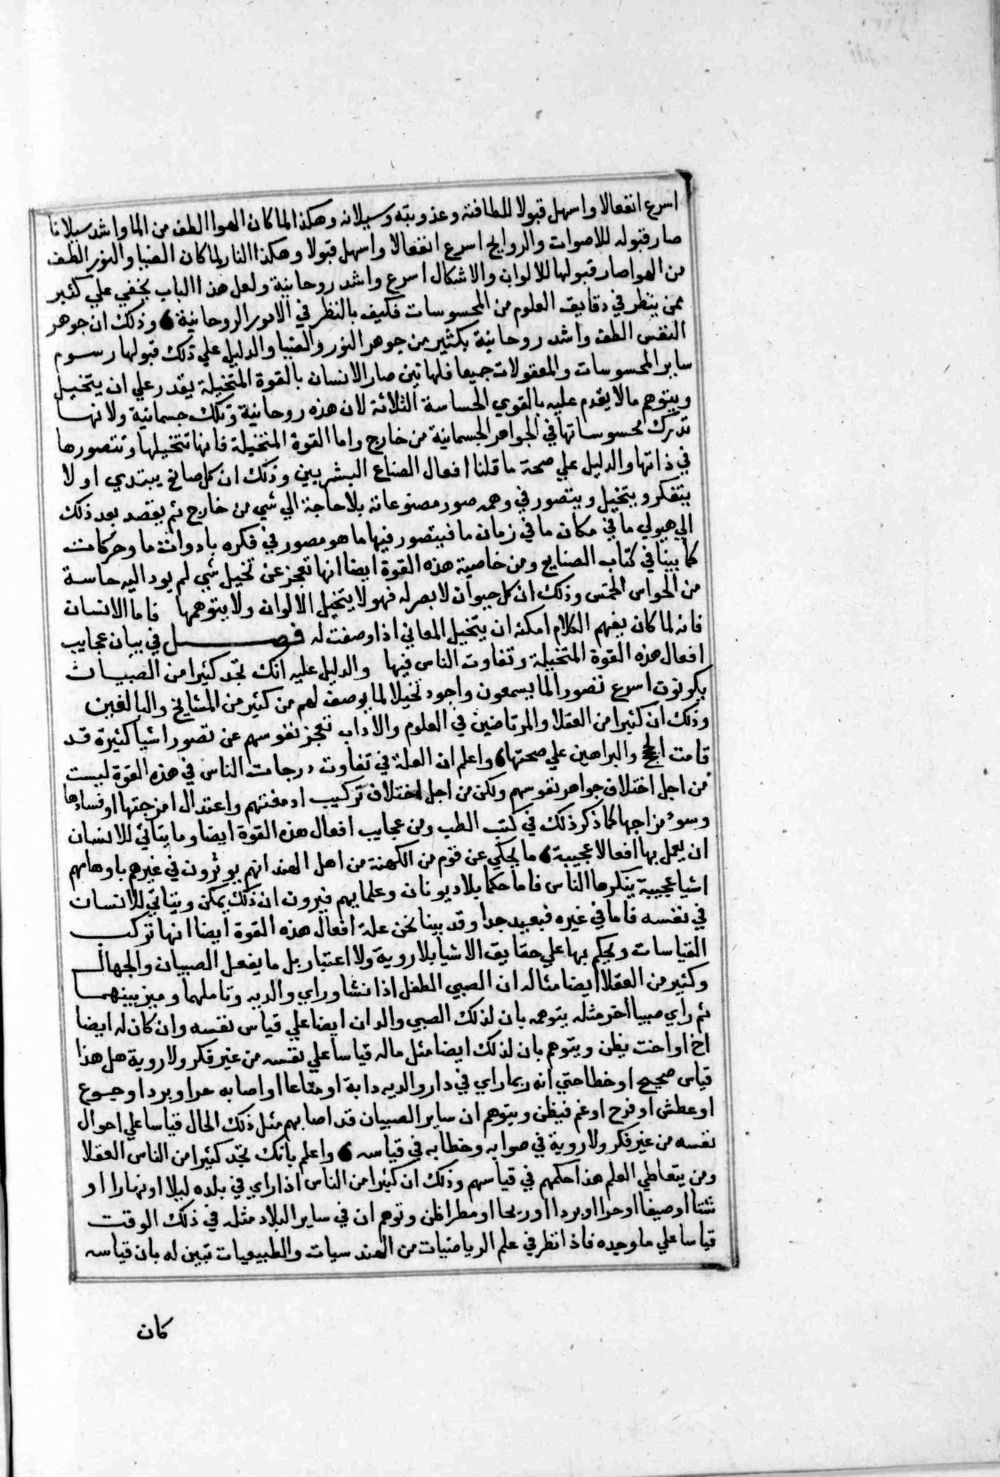 اسرع انفعالا واسهل قبولا للطافته وعذوبته وسيلانه وهكذا لما كان الهوا الطف من الما واشد سيلانا
صار قبوله للاصوات والروايح اسرع انفعالا واسهل قبولا وهكذا النار لما كان الضيا والنور الطف
من الهوا صار قبولها للالوان والاشكال اسرع واشد روحانية ولعل هذا الباب يخفي علي كثير
ممن ينظر في دقايق العلوم من المحسوسات فكيف بالنظر في الامور الروحانية وذلك ان جوهر
النفس الطف واشد روحانية بكثير من جوهر النور والضيا والدليل علي ذلك قبولها رسوم
ساير المحسوسات والمعقولات جميعا فلهاتين صار الانسان بالقوة المتخيلة يقدر علي ان يتخيل
ويتوهم ما لا يقدم عليه بالقوي الحساسة الثلاثة لان هذه روحانية وتلك جسمانية ولانها
تدرك محسوساتها في الجواهر الجسمانية من خارج واما القوة المتخيلة فانها تتخيلها وتتصورها
في ذاتها والدليل علي صحة ما قلنا افعال الصناع البشريين وذلك ان كل صانع يبتدي اولا
يتفكر ويتخيل ويتصور في وهمه صور مصنوعاته بلا حاجة الي شي من خارج ثم يقصد بعد ذلك
الي هيولي ما في مكان ما في زمان ما فيتصور فيها ما هو مصور في فكره بادوات ما وحركات
كما بينا في كتاب الصنايع ومن خاصية هذه القوة ايضا انها تعجز عن تخيل شي لم يود اليه حاسة
من الحواس الخمس وذلك ان كل حيوان لا بصر له فهو لا يتخيل الالوان ولا يتوهمها فاما الانسان
فانه لما كان يفهم الكلام امكنه ان يتخيل المعاني اذا وصفت له فصل في بيان عجايب
افعال هذه القوة المتخيلة وتفاوت الناس فيها والدليل عليه انك تجد كثيرا من الصبيان
يكونون اسرع تصورا لما يسمعون واجود تخيلا لما يوصف لهم من كثير من المشايخ والبالغين
وذلك ان كثيرا من العقلا والمرتاضين في العلوم والاداب تعجز نفوسهم عن تصور اشيا كثيرة قد
قامت الحجج والبراهين علي صحتها واعلم ان العلة في تفاوت درجات الناس في هذه القوة ليست
من اجل اختلاف جواهر نفوسهم ولكن من اجل اختلاف تركيب ادمغتهم واعتدال امزجتها او فسادها
وسوء مزاجها كما ذكر ذلك في كتب الطب ومن عجايب افعال هذه القوة ايضا وما يتاتي للانسان
ان يعمل بها افعالا عجيبة ما يحكي عن قوم من الكهنة من اهل الهند انهم يوثرون في غيرهم باوهامهم
اشيا عجيبة ينكرها الناس فاما حكما بلاد يونان وعلمايهم فيرون ان ذلك يمكن ويتاتي للانسان
في نفسه فاما في غيره فبعيد جدا وقد بينا نحن علة افعال هذه القوة ايضا انها تركب
القياسات ويحكم بها علي حقايق الاشيا بلا روية ولا اعتبار بل ما يفعل الصبيان والجهال
وكثير من العقلا ايضا مثاله ان الصبي الطفل اذا نشا وراي والديه وتاملهما وميز بينهما
ثم راي صبيا اخر مثله يتوهمه بان لذلك الصبي والدان ايضا علي قياس نفسه وان كان له ايضا
اخ او اخت يظن ويتوهم بان لذلك ايضا مثل ماله قياسا علي نفسه من غير فكر ولا روية هل هذا
قياس صحيح او خطا حتي انه ربما راي في دار والديه دابة او متاعا او اصابه حر او برد او جوع
او عطش او فرح او غم فيظن ويتوهم ان ساير الصبيان قد اصابهم مثل ذلك الحال قياسا علي احوال
نفسه من غير فكر ولا روية في صوابه وخطابه في قياسه واعلم بانك تجد كثيرا من الناس العقلا
ومن يتعاطي العلم هذا حكمهم في قياسهم وذلك ان كثيرا من الناس اذا راي في بلده ليلا او نهارا او
شتا او صيفا او حرا او بردا او ريحا او مطرا ظن وتوهم ان في ساير البلاد مثله في ذلك الوقت
قياسا علي ما وجده فاذا نظر في علم الرياضيات من الهندسيات والطبيعيات تبين له بان قياسه
كان